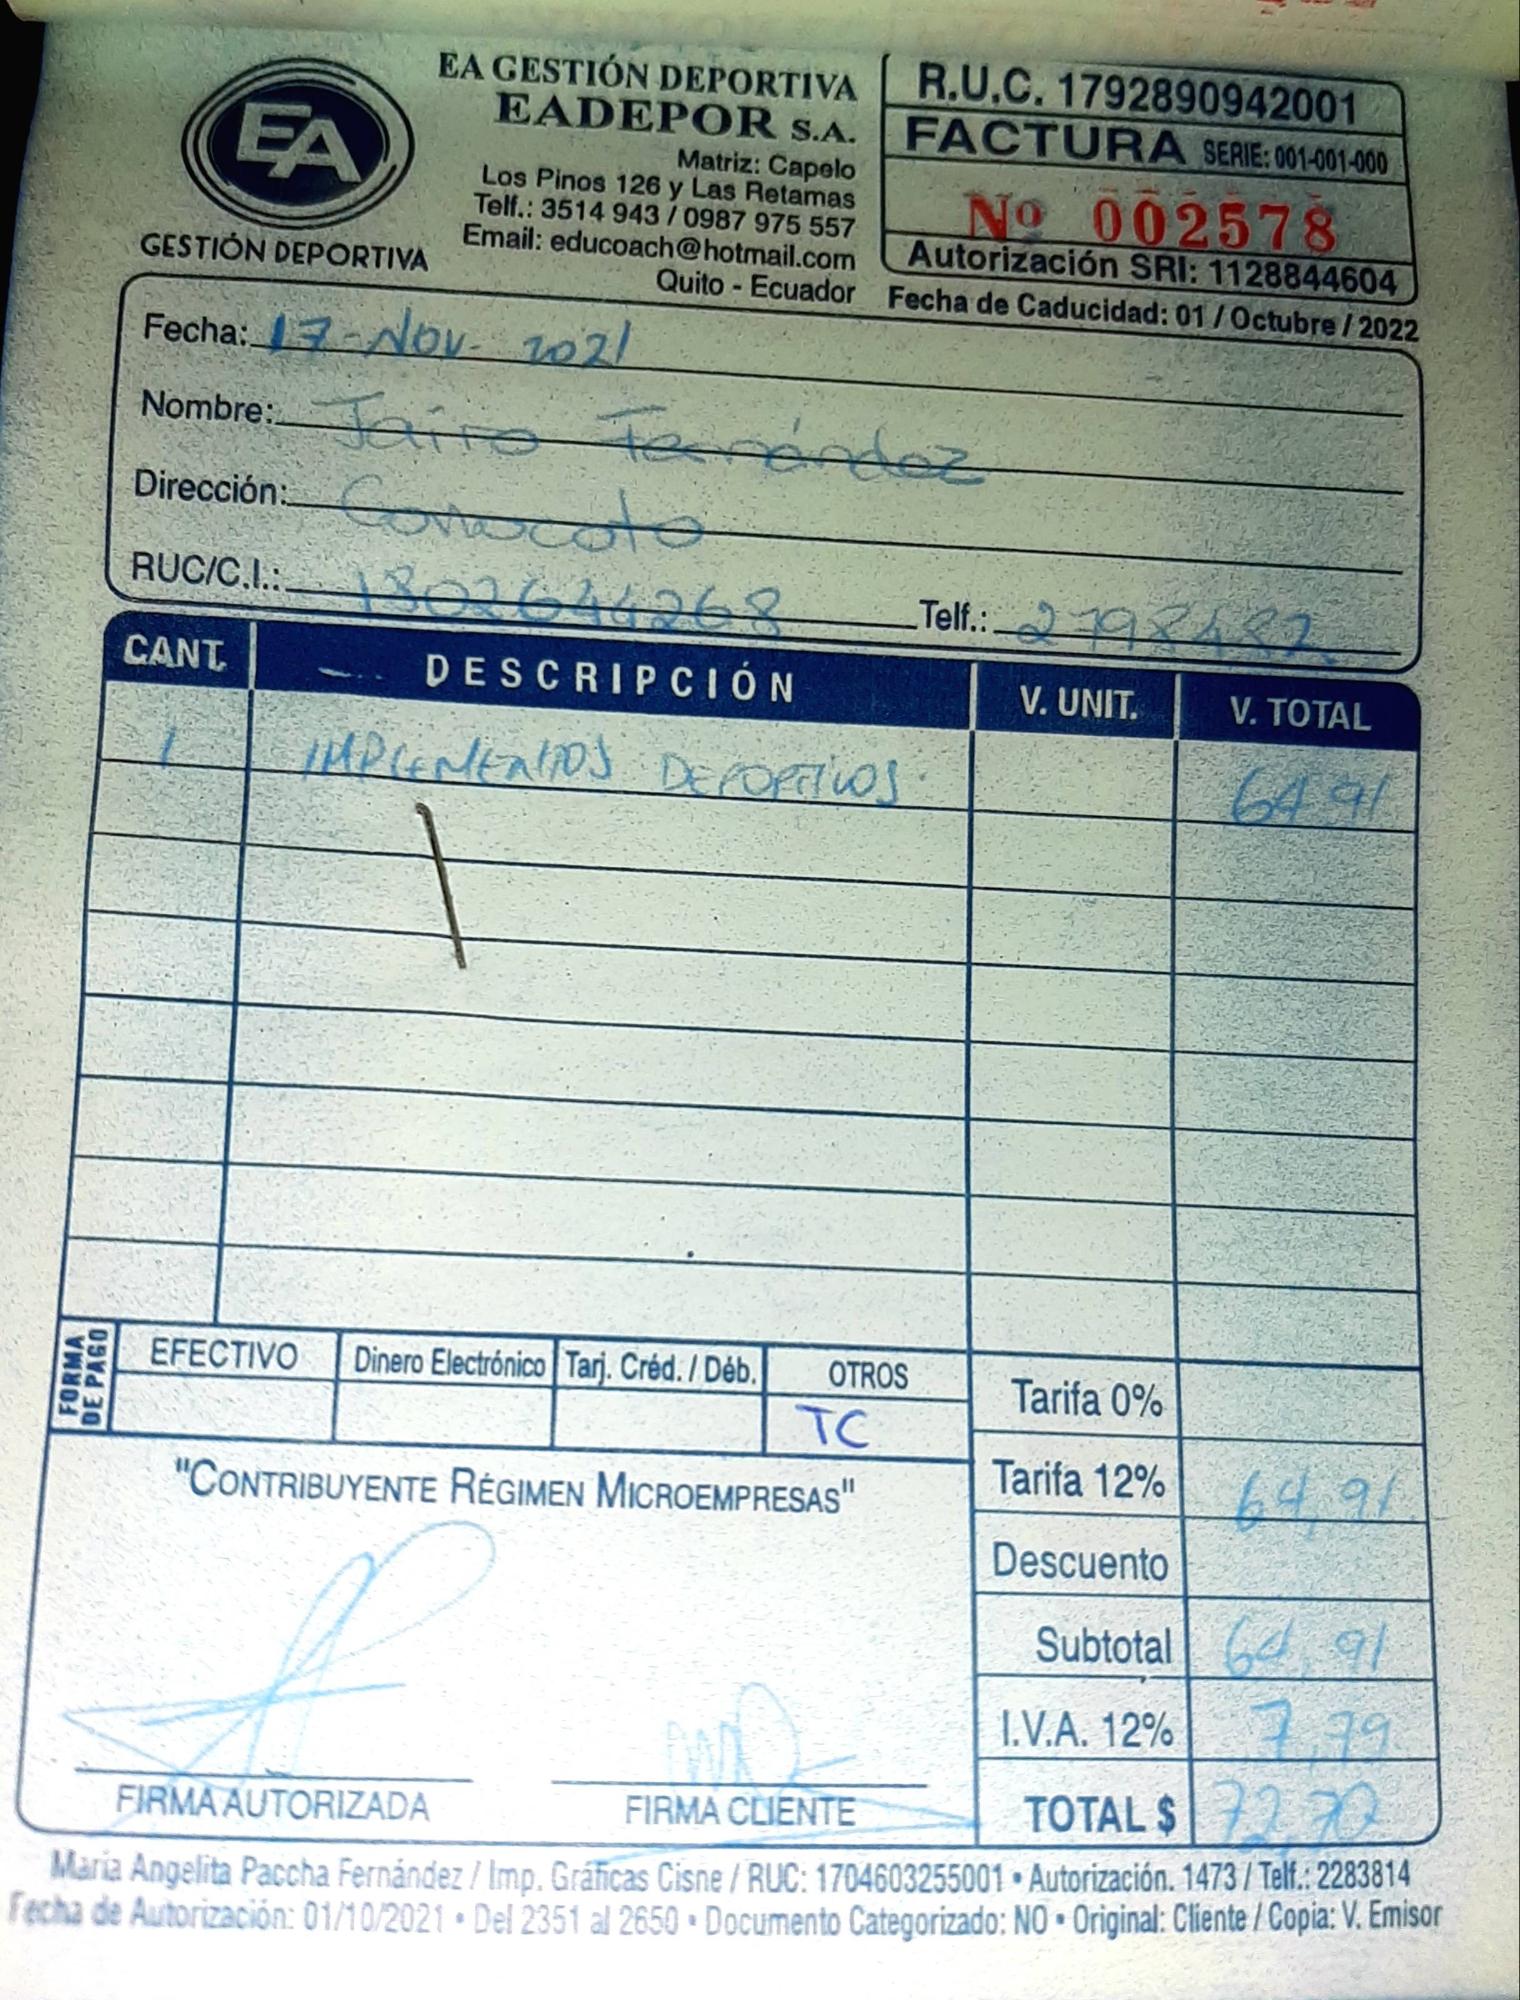 EA
GESTIÓN DEPORTIVA
EA GESTIÓN DEPORTIVA
EADEPOR S.A.
Matriz: Capelo
Los Pinos 126 y Las Retamas
Telf.: 3514 943 / 0987 975 557
Email: educoach@hotmail.com
Quito - Ecuador
R.U.C. 1792890942001
FACTURA SERIE: 001-001-000
Nº 002578
Autorización SRI: 1128844604
Fecha de Caducidad: 01 / Octubre / 2022
Fecha: 17-Nov- 2021
Nombre: Jairo Fernández
Dirección: Conocoto
RUC/C.I.: 1802644268 Telf.: 2798482
CANT. DESCRIPCIÓN V. UNIT. V. TOTAL
1 IMPLEMENTOS DEPORTIVOS 64,91
FORMA DE PAGO
EFECTIVO Dinero Electrónico Tarj. Créd. / Déb. OTROS
TC
Tarifa 0%
Tarifa 12% 64,91
Descuento
Subtotal 64,91
I.V.A. 12% 7,79
TOTAL $ 72,70
"CONTRIBUYENTE RÉGIMEN MICROEMPRESAS"
FIRMA AUTORIZADA FIRMA CLIENTE
María Angelita Paccha Fernández / Imp. Gráficas Cisne / RUC: 1704603255001 • Autorización. 1473 / Telf.: 2283814
Fecha de Autorización: 01/10/2021 • Del 2351 al 2650 • Documento Categorizado: NO • Original: Cliente / Copia: V. Emisor